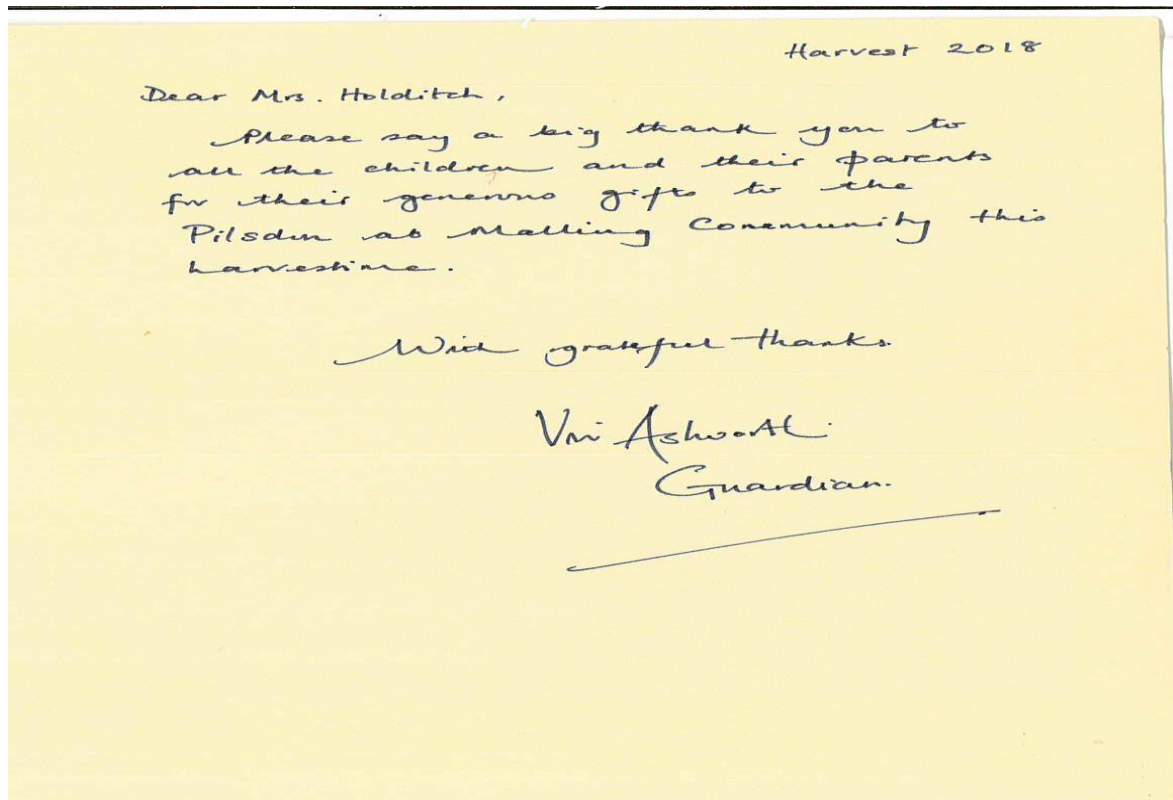 Harvest 2018
Dear Mrs. Holditch,
Please say a big thank you to
all the children and their parents
for their generous gifts to the
Pilsdon at Malling Community this
harvestime.
With grateful thanks.
Viv Ashworth.
Guardian.